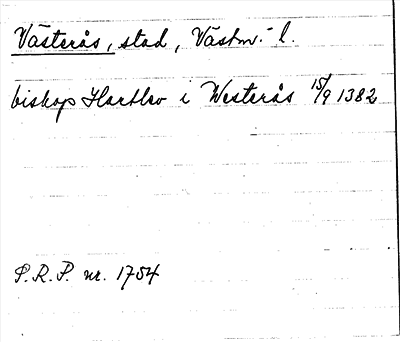 Västerås, stad, Västm:- l.
biskop Hartlev i Westerås 15/9 1382
P.R.P. nr. 1754